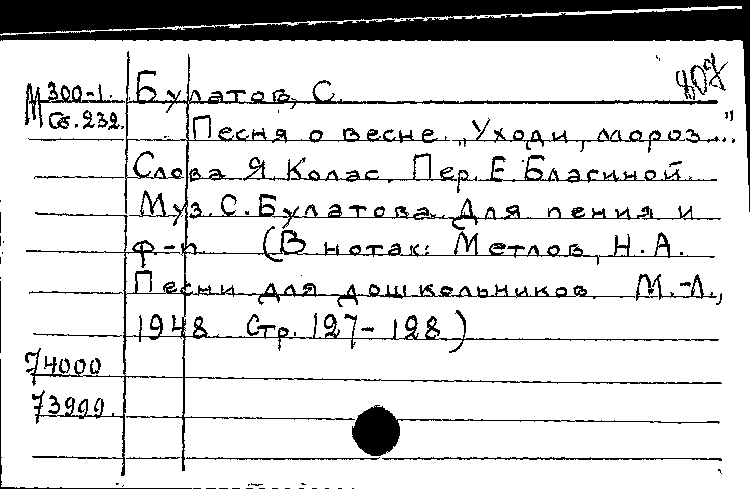 807
М 300-1. Булатов, С.
Сб. 232. Песня о весне „Уходи, мороз..."
Слова Я. Колас. Пер. Е. Благиной.
Муз. С. Булатова. Для пения и
ф-п. (В нотах: Метлов, Н.А.
Песни для дошкольников. М.-Л.,
1948. Стр. 127-128)
74000
73999.